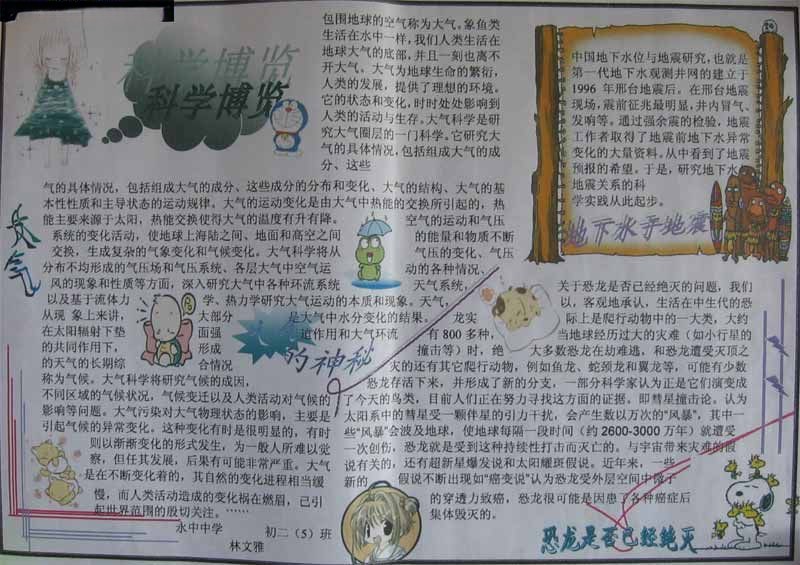 科学博览
科学博览
包围地球的空气称为大气。象鱼类
生活在水中一样，我们人类生活在
地球大气的底部，并且一刻也离不
开大气。大气为地球生命的繁衍，
人类的发展，提供了理想的环境。
它的状态和变化，时时处处影响到
人类的活动与生存。大气科学是研
究大气圈层的一门科学。它研究大
气的具体情况，包括组成大气的成
分、这些
气的具体情况，包括组成大气的成分、这些成分的分布和变化、大气的结构、大气的基
本性性质和主导状态的运动规律。大气的运动变化是由大气中热能的交换所引起的，热
能主要来源于太阳，热能交换使得大气的温度有升有降。空气的运动和气压
系统的变化活动，使地球上海陆之间、地面和高空之间的能量和物质不断
交换，生成复杂的气象变化和气候变化。大气科学将从气压的变化、气压
分布不均形成的气压场和气压系统、各层大气中空气运动的各种情况、
风的现象和性质等方面，深入研究大气中各种环流系统天气系统，
以及基于流体力学、热力学研究大气运动的本质和现象。天气，
从现象上来讲，大部分是大气中水分变化的结果。
在太阳辐射下垫面强道作用和大气环流
的共同作用下，形成
的天气的长期综合情况
称为气候。大气科学将研究气候的成因，
不同区域的气候状况，气候变迁以及人类活动对气候的
影响等问题。大气污染对大气物理状态的影响，主要是
引起气候的异常变化。这种变化有时是很明显的，有时
则以渐渐变化的形式发生，为一般人所难以觉
察，但任其发展，后果有可能非常严重。大气
是在不断变化着的，其自然的变化进程相当缓
慢，而人类活动造成的变化祸在燃眉，已引
起世界范围的殷切关注。……
水中中学 初二（5）班
林文雅
的神秘
中国地下水位与地震研究，也就是
第一代地下水观测井网的建立于
1996 年邢台地震后。在邢台地震
现场，震前征兆最明显，井内冒气、
发响等。通过强余震的检验，地震
工作者取得了地震前地下水异常
变化的大量资料。从中看到了地震
预报的希望。于是，研究地下水
地震关系的科
学实践从此起步。
地下水于地震
关于恐龙是否已经绝灭的问题，我们
以，客观地承认，生活在中生代的恐
龙实际上是爬行动物中的一大类，大约
有 800 多种，当地球经历过大的灾难（如小行星的
撞击等）时，绝大多数恐龙在劫难逃，和恐龙遭受灭顶之
灾的还有其它爬行动物，例如鱼龙、蛇颈龙和翼龙等，可能有少数
恐龙存活下来，并形成了新的分支，一部分科学家认为正是它们演变成
了今天的鸟类，目前人们正在努力寻找这方面的证据。即彗星撞击论。认为
太阳系中的彗星受一颗伴星的引力干扰，会产生数以万次的“风暴”，其中一
些“风暴”会波及地球，使地球每隔一段时间（约 2600-3000 万年）就遭受
一次创伤，恐龙就是受到这种持续性打击而灭亡的。与宇宙带来灾难的假
说有关的，还有超新星爆发说和太阳耀斑假说。近年来，一些
新的假说不断出现如“癌变说”认为恐龙受外层空间中微子
的穿透力致癌，恐龙很可能是因患了各种癌症后
集体毁灭的。
恐龙是否已经绝灭